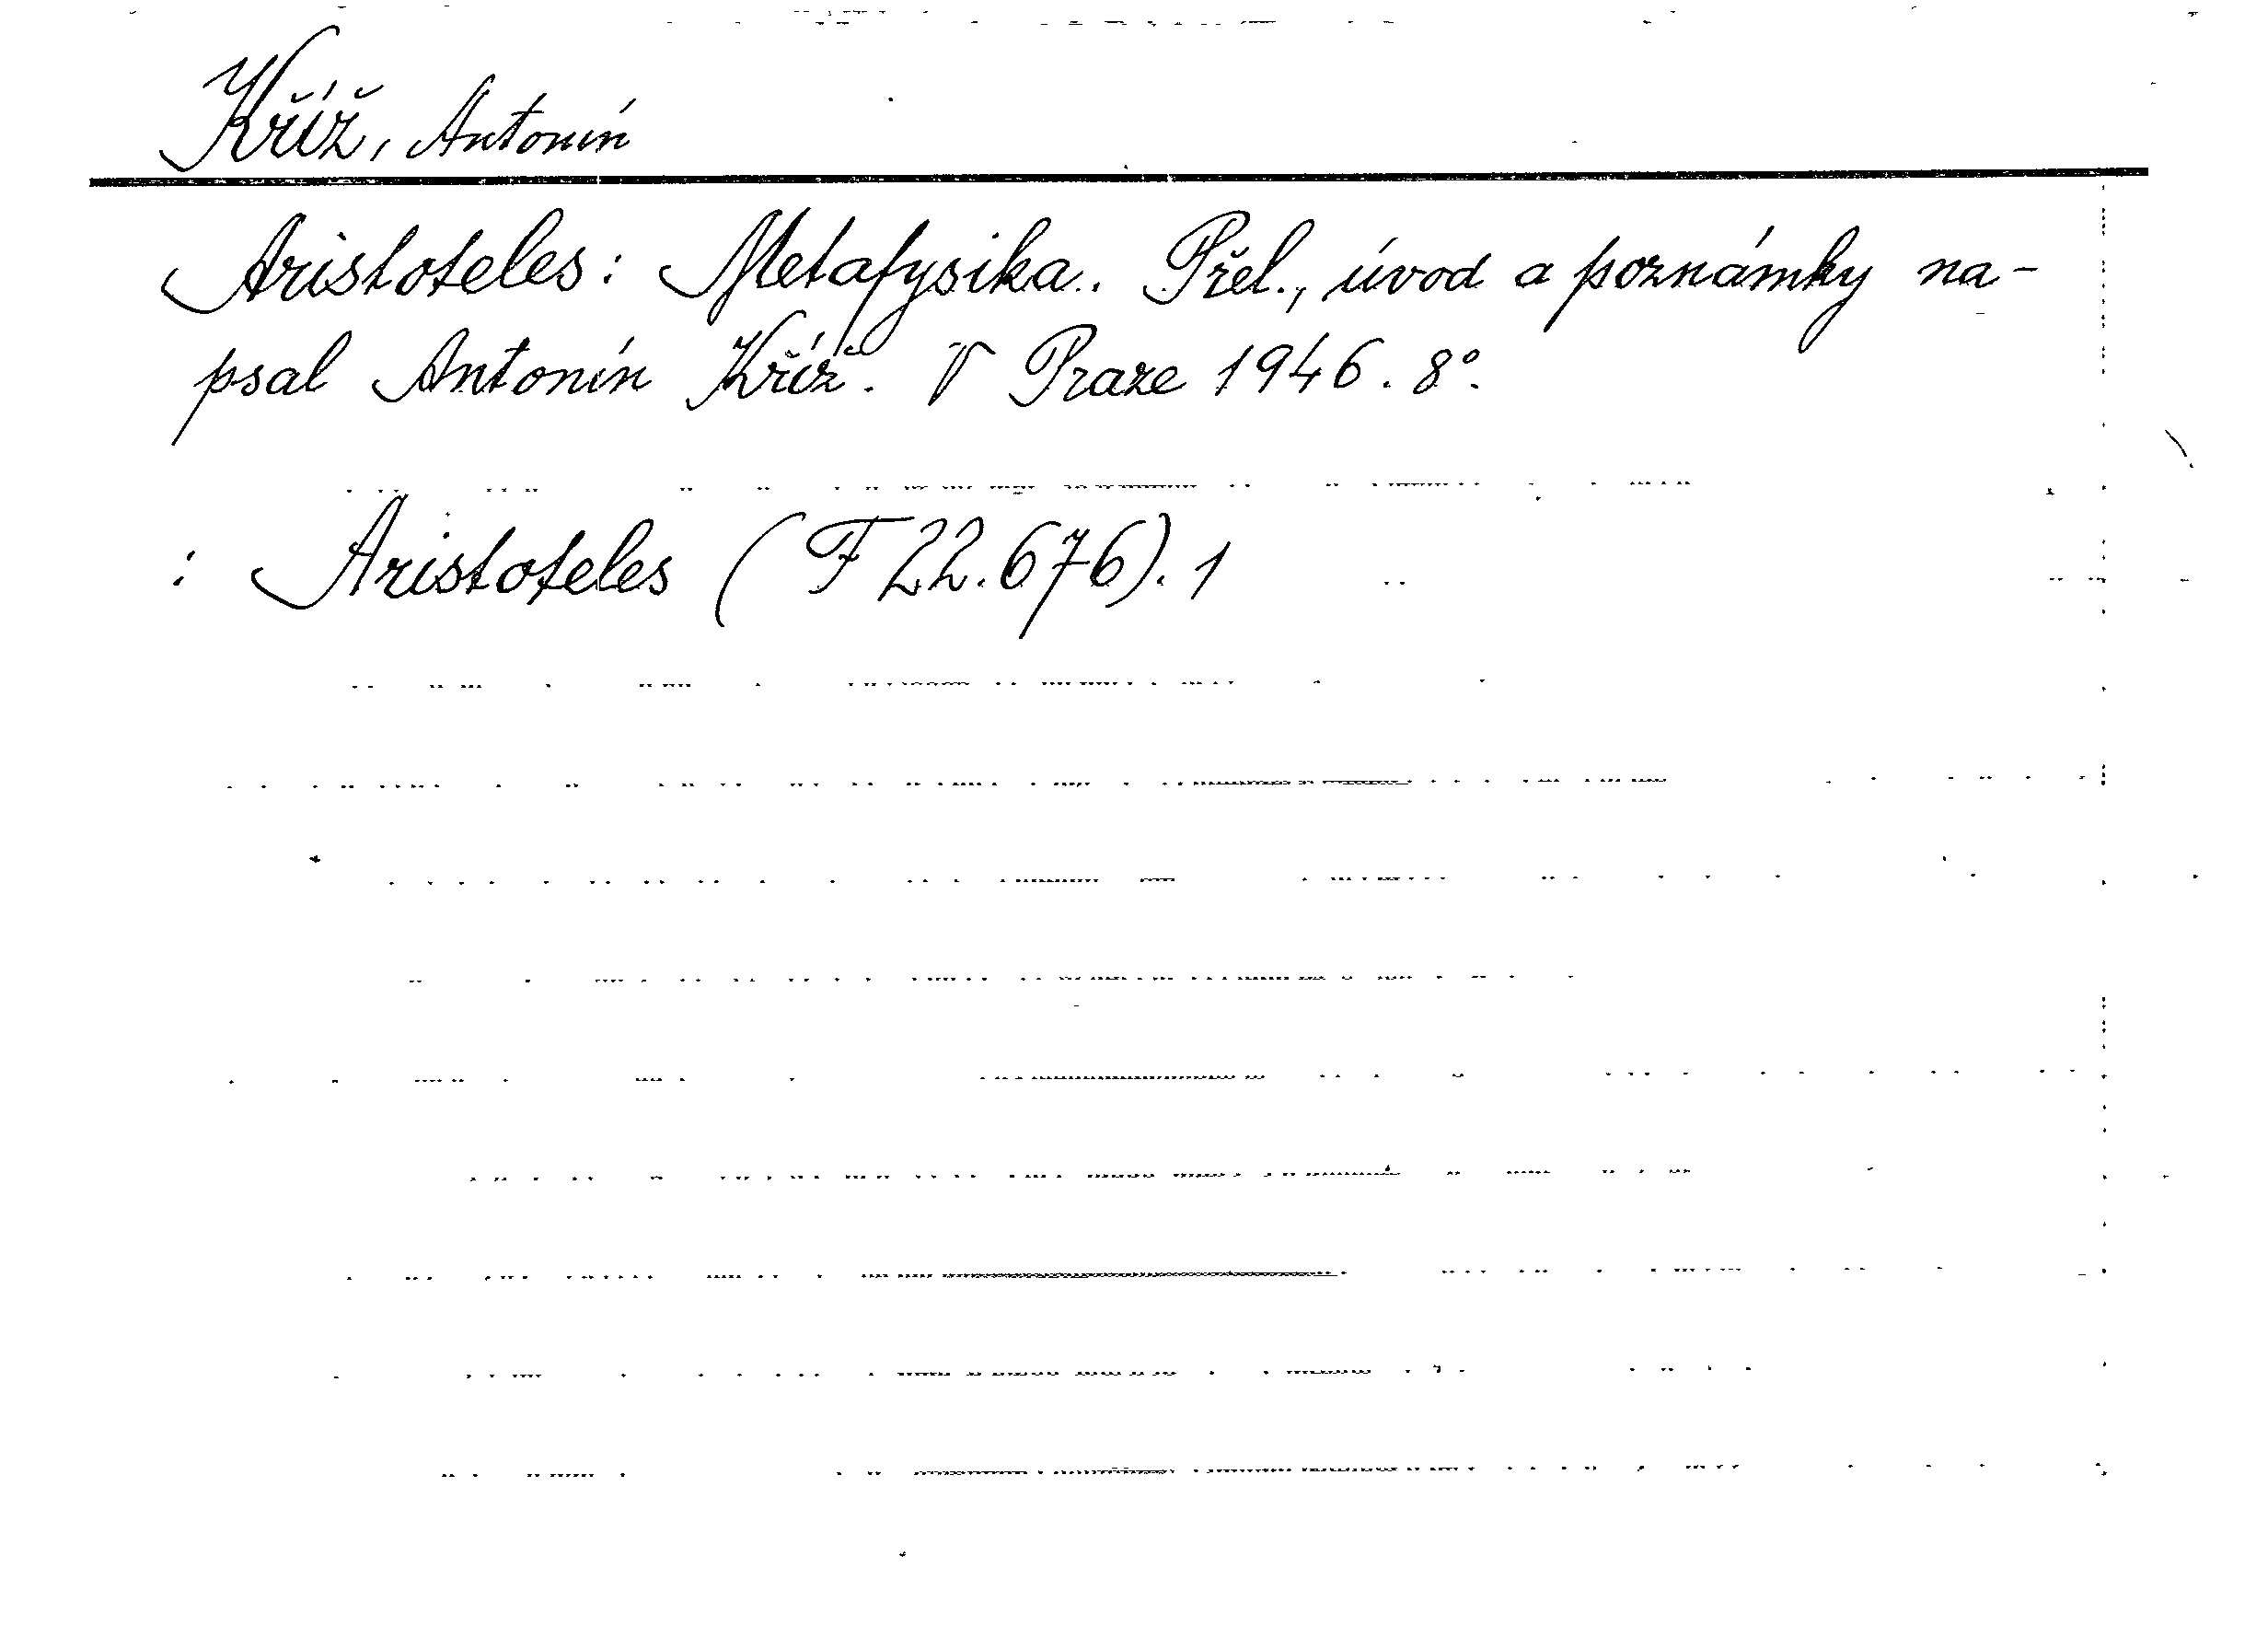 Kříž, Antonín
Aristoteles: Metafysika. Přel., úvod a poznámky na-
psal Antonín Kříž. V Praze 1946. 8°.
: Aristoteles (F 22.676). 1